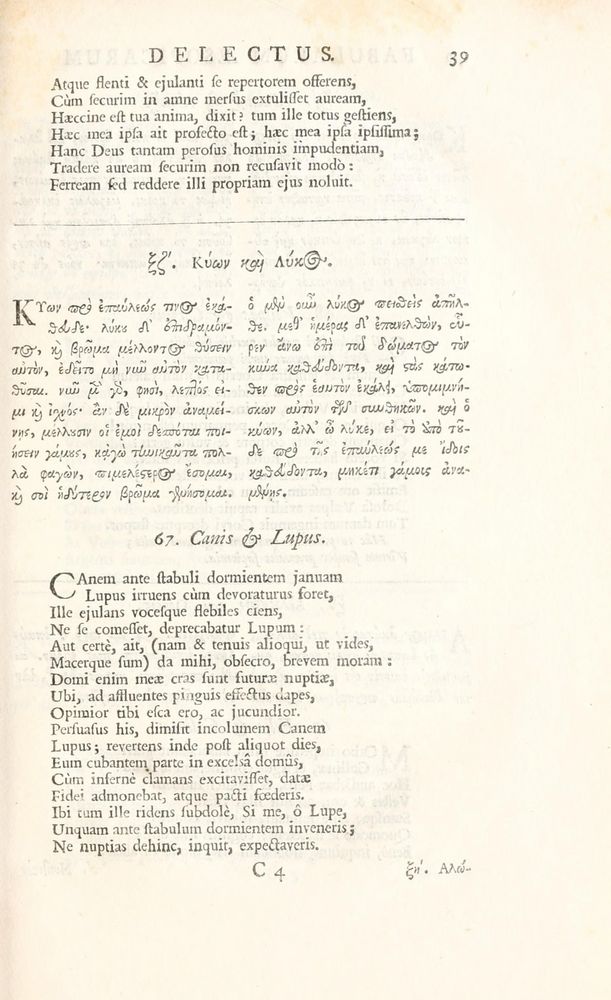 DELECTUS. 39
Atque flenti & ejulanti se repertorem offerens,
Cùm securim in amne mersus extulisset auream,
Hæccine est tua anima, dixit? tum ille totus gestiens,
Hæc mea ipsa ait profecto est; hæc mea ipsa ipsissima;
Hanc Deus tantam perosus hominis impudentiam,
Tradere auream securim non recusavit modò:
Ferream sed reddere illi propriam ejus noluit.
ξζʹ. Κύων καὶ Λύκος.
ΚΥων πρὸ ἐπαύλεώς τινος ἐκά-
θευδε· λύκου δ' ἐπιδραμόν-
τος, καὶ βρῶμα μέλλοντος θύσειν
αὐτὸν, ἐδεῖτο μὴ νῦν αὐτὸν κατα-
θῦσαι. νῦν μὲν γὰρ, φησὶ, λεπτὸς εἰ-
μι καὶ ἰχνός· ἂν δὲ μικρὸν ἀναμεί-
νῃς, μέλλουσιν οἱ ἐμοὶ δεσπόται ποι-
ήσειν γάμους, κᾀγὼ τηνικαῦτα πολ-
λὰ φαγὼν, πιμελέστερος ἔσομαι,
καὶ σοὶ ἡδύτερον βρῶμα γενήσομαι.
ὁ μὲν οὖν λύκος πεισθεὶς ἀπῆλ-
θε. μεθ' ἡμέρας δ' ἐπανελθὼν, εὗ-
ρεν ἄνω ἐπὶ τοῦ δώματος τὸν
κύνα καθεύδοντα, καὶ στὰς κάτω-
θεν πρὸς ἑαυτὸν ἐκάλει, ὑπομιμνή-
σκων αὐτὸν τῶν συνθηκῶν. καὶ ὁ
κύων, ἀλλ' ὦ λύκε, εἰ τὸ ἀπὸ τοῦ-
δε πρὸ τῆς ἐπαύλεώς με ἴδοις
καθεύδοντα, μηκέτι γάμους ἀνα-
μένῃς.
67. Canis & Lupus.
CAnem ante stabuli dormientem januam
Lupus irruens cùm devoraturus foret,
Ille ejulans vocesque flebiles ciens,
Ne se comesset, deprecabatur Lupum:
Aut certè, ait, (nam & tenuis alioqui, ut vides,
Macerque sum) da mihi, obsecro, brevem moram:
Domi enim meæ cras sunt futuræ nuptiæ,
Ubi, ad affluentes pinguis effectus dapes,
Opimior tibi esca ero, ac jucundior.
Persuasus his, dimisit incolumem Canem
Lupus; revertens inde post aliquot dies,
Eum cubantem parte in excelsâ domûs,
Cùm infernè clamans excitavisset, datæ
Fidei admonebat, atque pacti fœderis.
Ibi tum ille ridens subdolè, Si me, ô Lupe,
Unquam ante stabulum dormientem inveneris;
Ne nuptias dehinc, inquit, expectaveris.
C 4 ξηʹ. Αλώ-